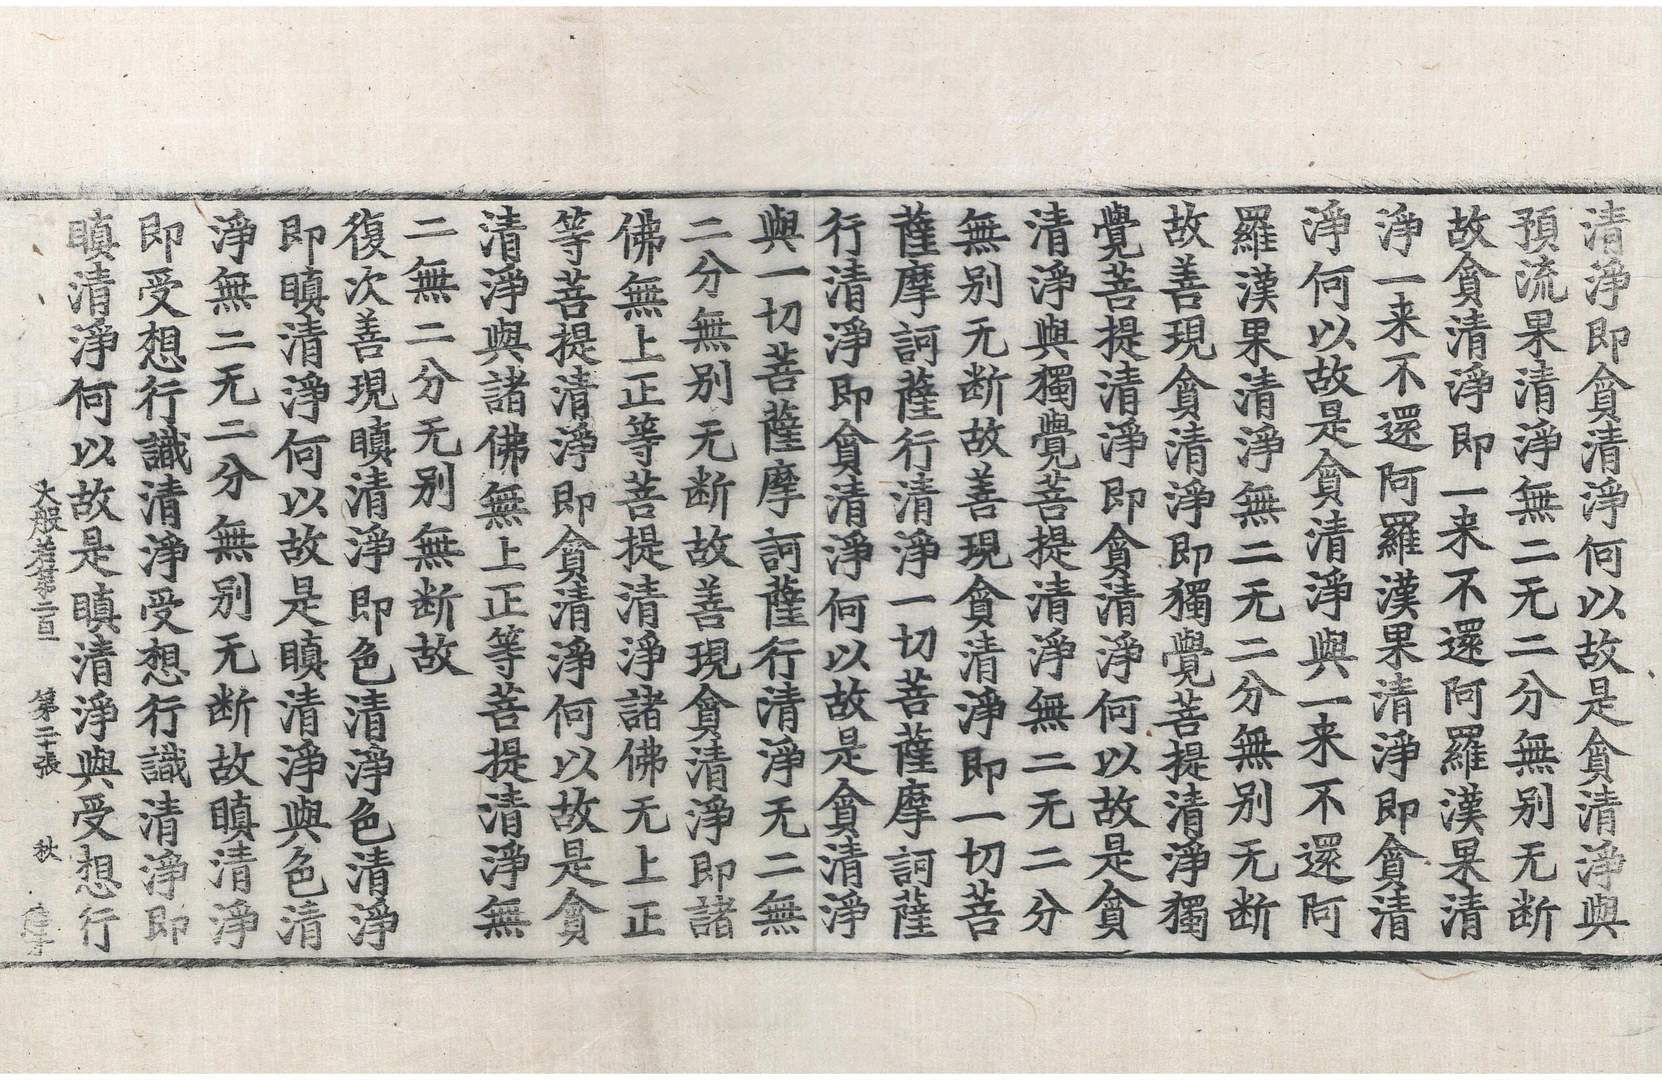 清淨即貪清淨何以故是貪清淨與
預流果清淨無二无二分無别无断
故貪清淨即一来不還阿羅漢果清
淨一来不還阿羅漢果清淨即貪清
淨何以故是貪清淨與一来不還阿
羅漢果清淨無二无二分無别无断
故善現貪清淨即獨覺菩提清淨獨
覺菩提清淨即貪清淨何以故是貪
清淨與獨覺菩提清淨無二无二分
無别无断故善現貪清淨即一切菩
薩摩訶薩行清淨一切菩薩摩訶薩
行清淨即貪清淨何以故是貪清淨
與一切菩薩摩訶薩行清淨无二無
二分無别无断故善現貪清淨即諸
佛無上正等菩提清淨諸佛无上正
等菩提清淨即貪清淨何以故是貪
清淨與諸佛無上正等菩提清淨無
二無二分无别無断故
復次善現瞋清淨即色清淨色清淨
即瞋清淨何以故是瞋清淨與色清
淨無二无二分無别无断故瞋清淨
即受想行識清淨受想行識清淨即
瞋清淨何以故是瞋清淨與受想行
大般若第二百一 第二十張 秋